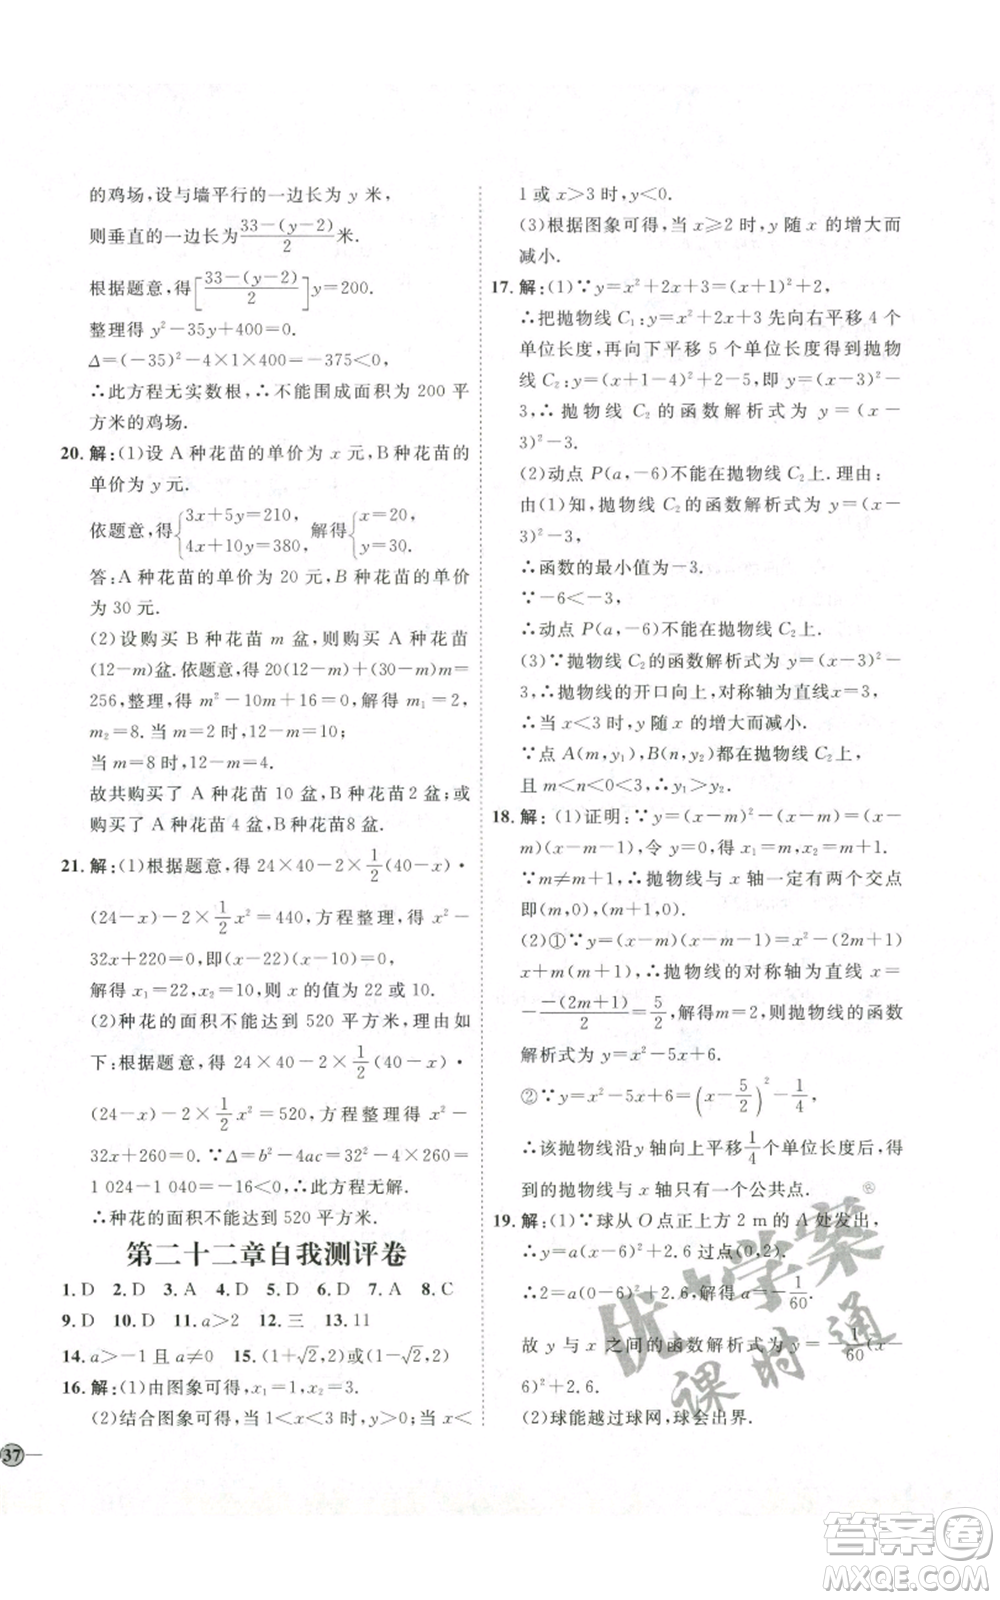 的鸡场,设与墙平行的一边长为 y 米,
则垂直的一边长为 (33-(y-2))/2 米.
根据题意,得[(33-(y-2))/2]y=200.
整理得 y²-35y+400=0.
Δ=(-35)²-4×1×400=-375<0,
∴此方程无实数根,∴不能围成面积为 200 平
方米的鸡场.
20. 解:(1)设 A 种花苗的单价为 x 元,B 种花苗的
单价为 y 元.
依题意,得{3x+5y=210, 4x+10y=380, 解得{x=20, y=30.
答:A 种花苗的单价为 20 元,B 种花苗的单价
为 30 元.
(2)设购买 B 种花苗 m 盆,则购买 A 种花苗
(12-m)盆.依题意,得 20(12-m)+(30-m)m=
256,整理,得 m²-10m+16=0,解得 m₁=2,
m₂=8. 当 m=2 时,12-m=10;
当 m=8 时,12-m=4.
故共购买了 A 种花苗 10 盆,B 种花苗2 盆;或
购买了 A 种花苗 4 盆,B 种花苗8 盆.
21. 解:(1)根据题意,得 24×40-2×1/2(40-x)·
(24-x)-2×1/2x²=440,方程整理,得 x²-
32x+220=0,即(x-22)(x-10)=0,
解得 x₁=22,x₂=10,则 x 的值为 22 或 10.
(2)种花的面积不能达到 520 平方米,理由如
下:根据题意,得 24×40-2×1/2(40-x)·
(24-x)-2×1/2x²=520,方程整理得 x²-
32x+260=0. ∵Δ=b²-4ac=(-32)²-4×260=
1 024-1 040=-16<0,∴此方程无解.
∴种花的面积不能达到 520 平方米.
第二十二章自我测评卷
1. D 2. D 3. A 4. D 5. D 6. D 7. A 8. C
9. D 10. D 11. a>2 12. 三 13. 11
14. a>-1 且 a≠0 15. (1+√2,2)或(1-√2,2)
16. 解:(1)由图象可得,x₁=1,x₂=3.
(2)结合图象可得,当 1<x<3 时,y>0;当 x<
37
1 或 x>3 时,y<0.
(3)根据图象可得,当 x≥2 时,y 随 x 的增大而
减小.
17. 解:(1)∵y=x²+2x+3=(x+1)²+2,
∴把抛物线 C₁:y=x²+2x+3 先向右平移 4 个
单位长度,再向下平移 5 个单位长度得到抛物
线 C₂:y=(x+1-4)²+2-5,即 y=(x-3)²-
3,∴ 抛物线 C₂ 的函数解析式为 y=(x-
3)²-3.
(2)动点 P(a,-6)不能在抛物线 C₂上. 理由:
由(1)知,抛物线 C₂的函数解析式为 y=(x-
3)²-3,
∴函数的最小值为-3.
∵-6<-3,
∴动点 P(a,-6)不能在抛物线 C₂上.
(3)∵抛物线 C₂的函数解析式为 y=(x-3)²-3,
∴抛物线的开口向上,对称轴为直线x=3,
∴当 x<3 时,y随 x 的增大而减小.
∵点 A(m,y₁),B(n,y₂)都在抛物线 C₂上,
且 m<n<0<3,∴y₁>y₂.
18. 解: (1)证明:∵y=(x-m)²-(x-m)=(x-
m)(x-m-1),令 y=0,得 x₁=m,x₂=m+1.
∵m≠m+1,∴抛物线与 x 轴一定有两个交点
即(m,0),(m+1,0).
(2)①∵y=(x-m)(x-m-1)=x²-(2m+1)
x+m(m+1),∴抛物线的对称轴为直线 x=
-(-(2m+1))/2=5/2,解得m=2,∴抛物线的函数
解析式为 y=x²-5x+6.
②∵y=x²-5x+6=(x-5/2)²-1/4,
∴该抛物线沿y 轴向上平移1/4个单位长度后,得
到的抛物线与 x 轴只有一个公共点.
19. 解:(1)∵球从 O 点正上方 2 m 的 A 处发出,
∴y=a(x-6)²+2.6 过点(0,2).
∴a(0-6)²+2.6=2,解得 a=-1/60.
故 y 与 x 之间的函数解析式为 y=-1/60(x-
6)²+2.6.
(2)球能越过球网,球会出界.
优+学案
课时通
答案卷
MXQE.COM